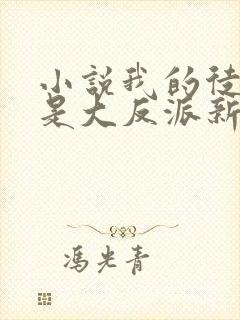 小說我的徒
是大反派新
馮光青